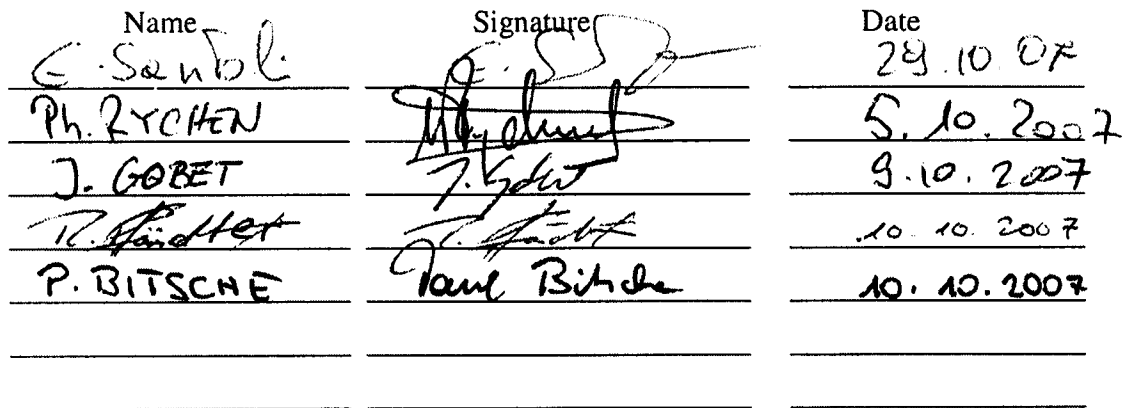 Name Signature Date
E. Santoli 29.10.07
Ph. RYCHEN 5.10.2007
J. GOBET J. Gobet 9.10.2007
R. 10.10.2007
P. BITSCHE Paul Bitsche 10.10.2007